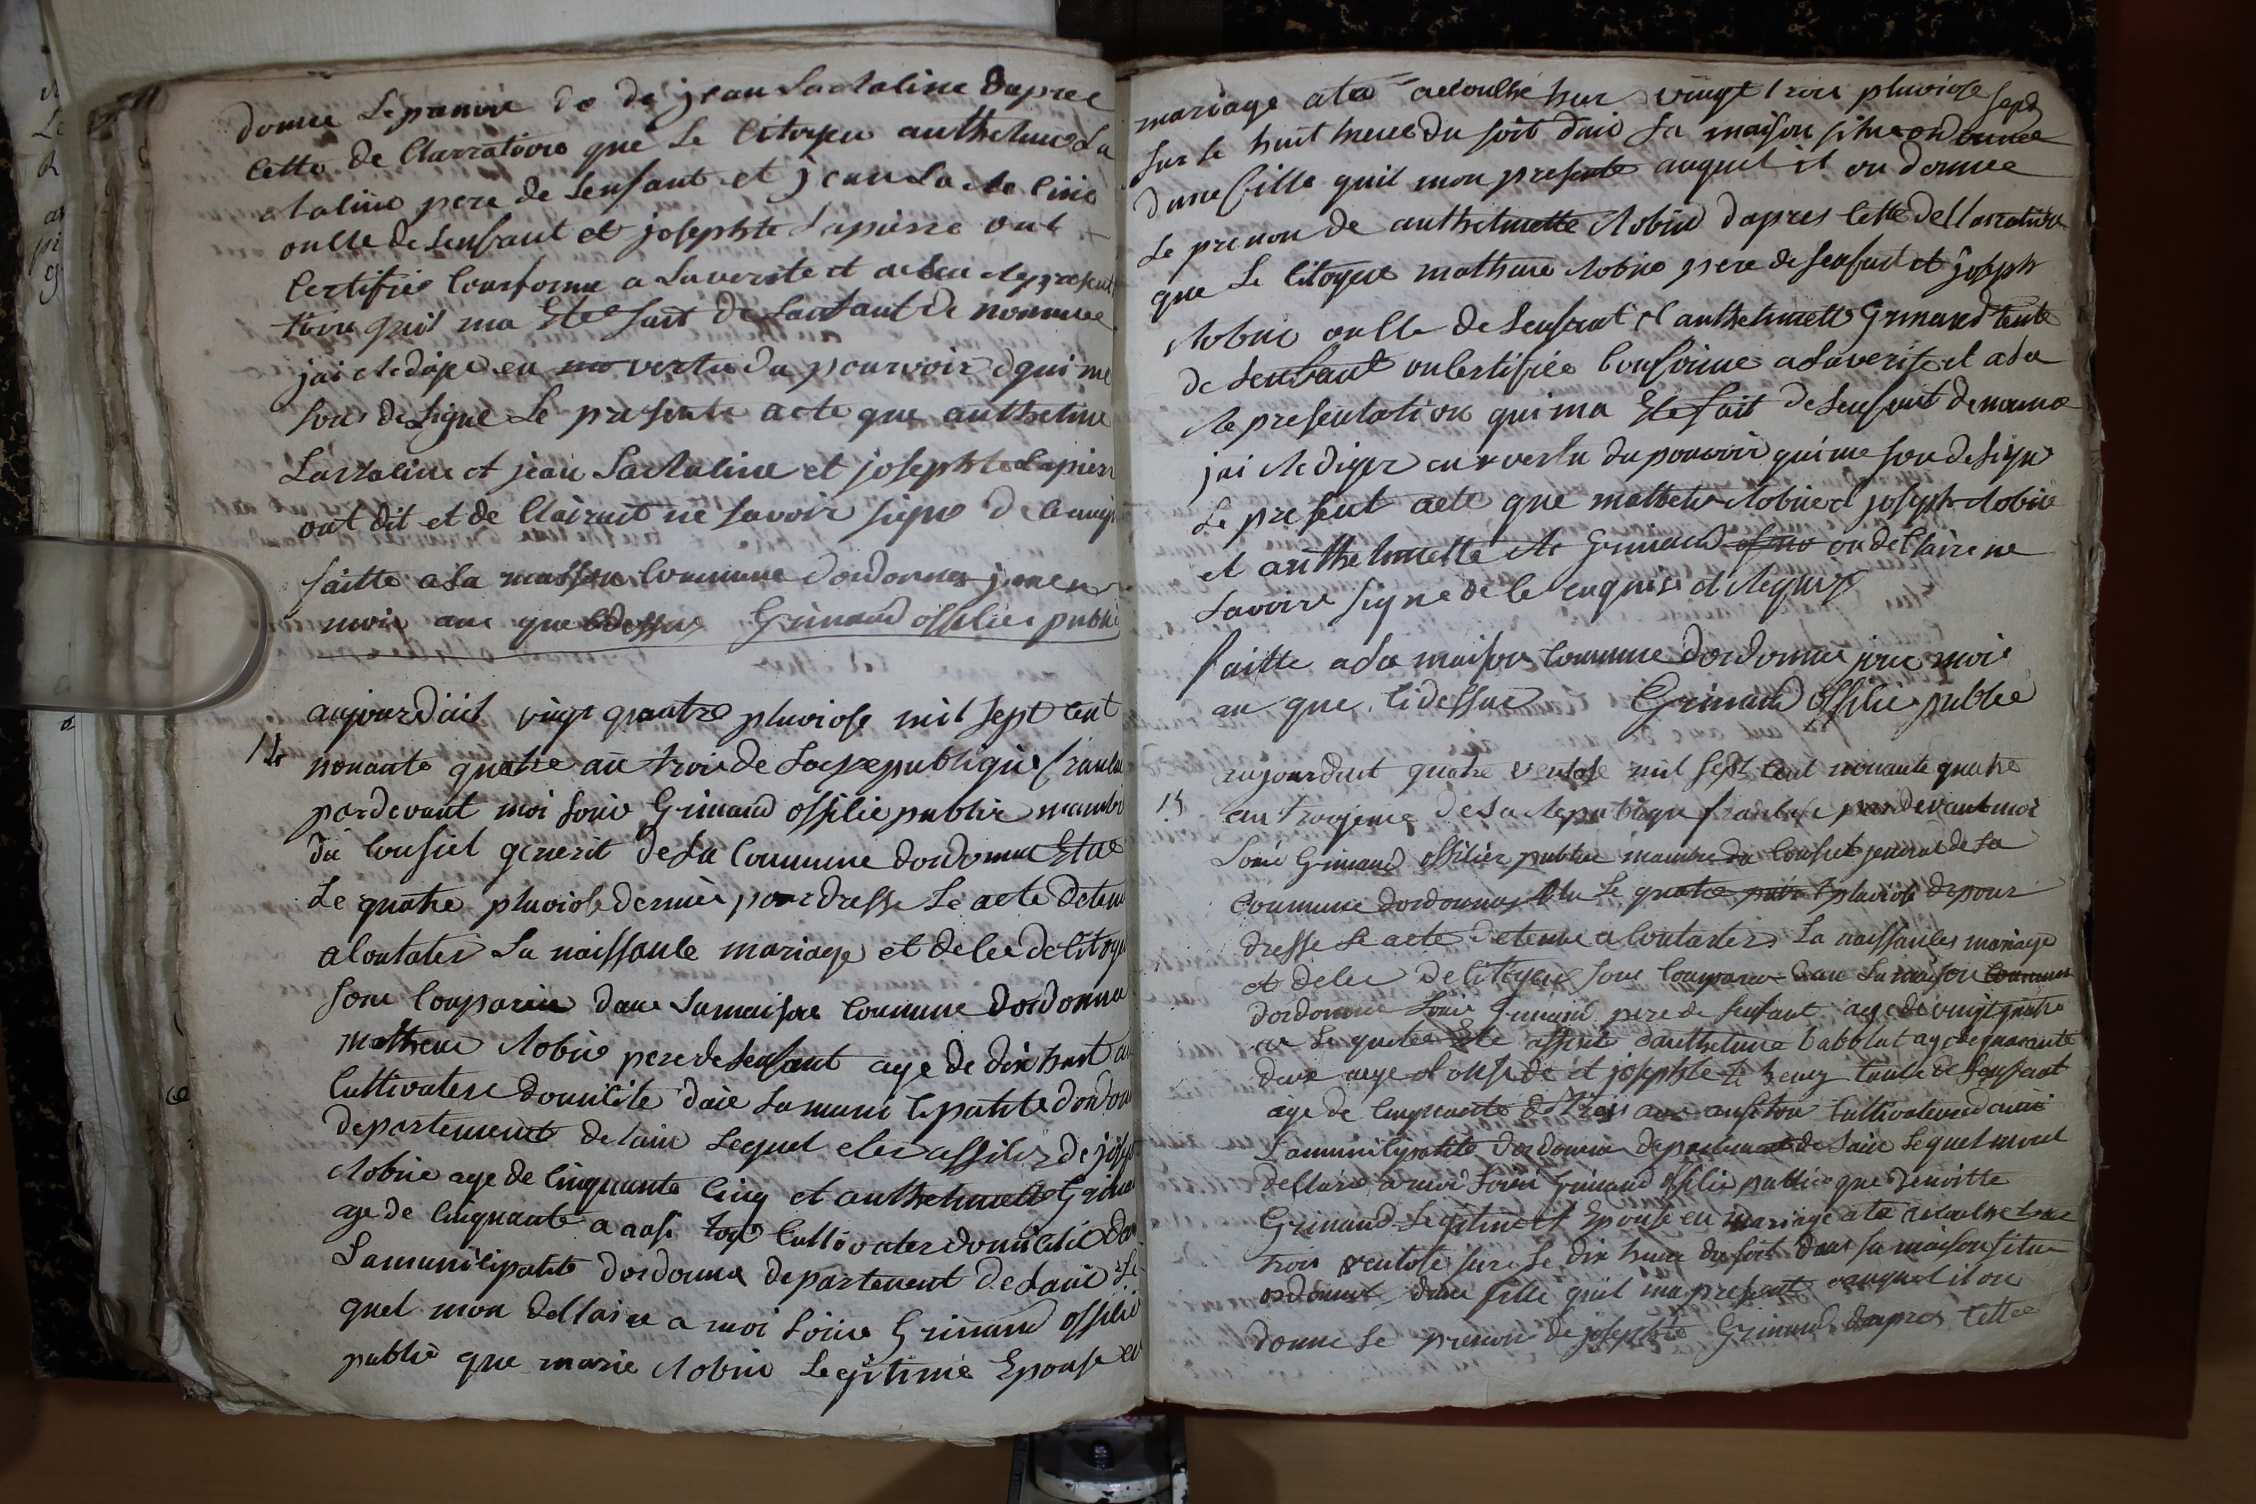 donne Le panoire de de jean Lactaline Dapres
Cette de Clarratoire que Le Citoyen anthelme La
ctaline pere de Lenfant et jean La cta line
oncle de Lenfant et josephte Lapierre ont
Certifiee Conforme a Laverite et a la Represent
tion quil ma Ete fait de Lanfant de nommee
jai Redige en vertu du pouvoir qui me
sons designe Le presente acte que anthelme
Lactaline et jean Lactaline et josephte Lapierr
ont dit et de Clairait ne savoir signe de
faitte a La maison Commune dordonnas jour
mois ans que Cdessus Grinand offilier public
aujourdiut vingt quatre pluviose mil sept cent
14 nonante quatre an trois de La Republique francai
pardevant moi Louis Grinand offilie public mambre
du Consiel generil de La Commune dordonnas Elue
Le quatre pluviose dernier pour dresse Le acte detenu
a Contater La naissance mariage et deCe de Citoye
sone Comparue dans Lamaison Commune dordonna
matheue Robin pere de Lenfant age de dix huit a
Cultivatere domicile dans La muni Cipalite dordon
departement de lain Lequel etes assister de joseph
Robin age de Cinquante Cinq et anthelmette Grinan
age de Cinquante a ansi tous Cultivater domicilie dan
Lamunicipalite dordonna departement de Lain Le
quel mon dellaire a moi Louis Grinand offilie
public que marie Robin Legitime Epouse en
mariage a la acoulhe hier vingt trois pluviose
sur le huit heures du soit dans sa maison situe ordonnas
dune fille quil mon presente auquel il on donnee
Le prenon de anthelmette Robin dapres Cette deClarratoire
que Le Citoyen matheue Robin pere de Lenfant et joseph
Robin oncle de Lenfant et anthelmette Grinand tente
de Lenfant on Certifiee Conforme a La verite et a La
Representation qui ma Ete fait de Lenfant de nomme
jai Rediger en vertu du pouvoir qui me son design
Le present acte que matheue Robin et joseph Robin
et anthelmette Grinand on dellaire ne
savoire signe de Ce enquis et Requis
faitte a La maison Commune dordonnas jour mois
an que Cidessus Grinand offilie public
aujourduit quatre ventose mil sept cent nonante quatre
15 an troisieme de La Republique francaise pardevant moi
Louis Grinand offilier public mambre du Consiel jeneral de La
Commune dordonnas Elu Le quatre pluviose de pour
dresse Le acte detenue a Contater La naissances mariage
et deCe de Citoyens sone Comparue dans La maison Commune
dordonnas Louis Grinand pere de Lenfant age de vingt quatre
an Lequel Ete assiste danthelme babblat age de quarante
deux et josephte tante de Lenfant
age de Cinquante de trois ans Cultivateur
Lamunicipalite dordonnas departement de Lain Lequel mont
dellaire a moi Louis Grinand offilie public que Benoitte
Grinand Legitime Epouse en mariage a la acoulhe hier
trois ventose sure Le dix heure du soit dans sa maison situe
ordonnas dune fille quil ma present auquel il on
donne Le prenon de josephte Grinand dapres Cette